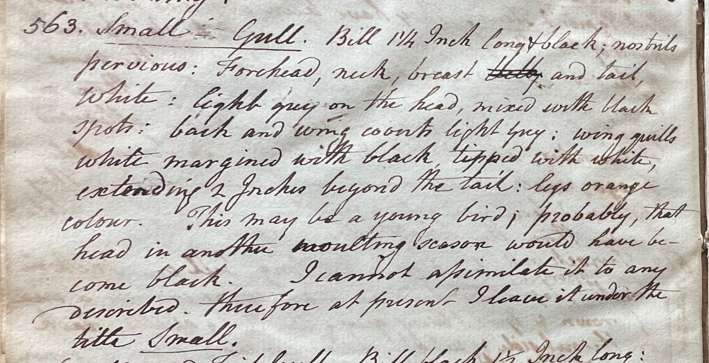 563. Small Gull. Bill 1¼ Inch long & black; nostrils
pervious: Forehead, neck, breast belly and tail,
White: light grey on the head, mixed with black
spots: back and wing coverts light grey: wing quills
white margined with black, tipped with white,
extending 2 Inches beyond the tail: legs orange
colour. This may be a young bird; probably, that
head in another moulting season would have be-
come black. I cannot assimilate it to any
described. therefore at present I leave it under the
title Small.
Bill black 1½ Inch long: